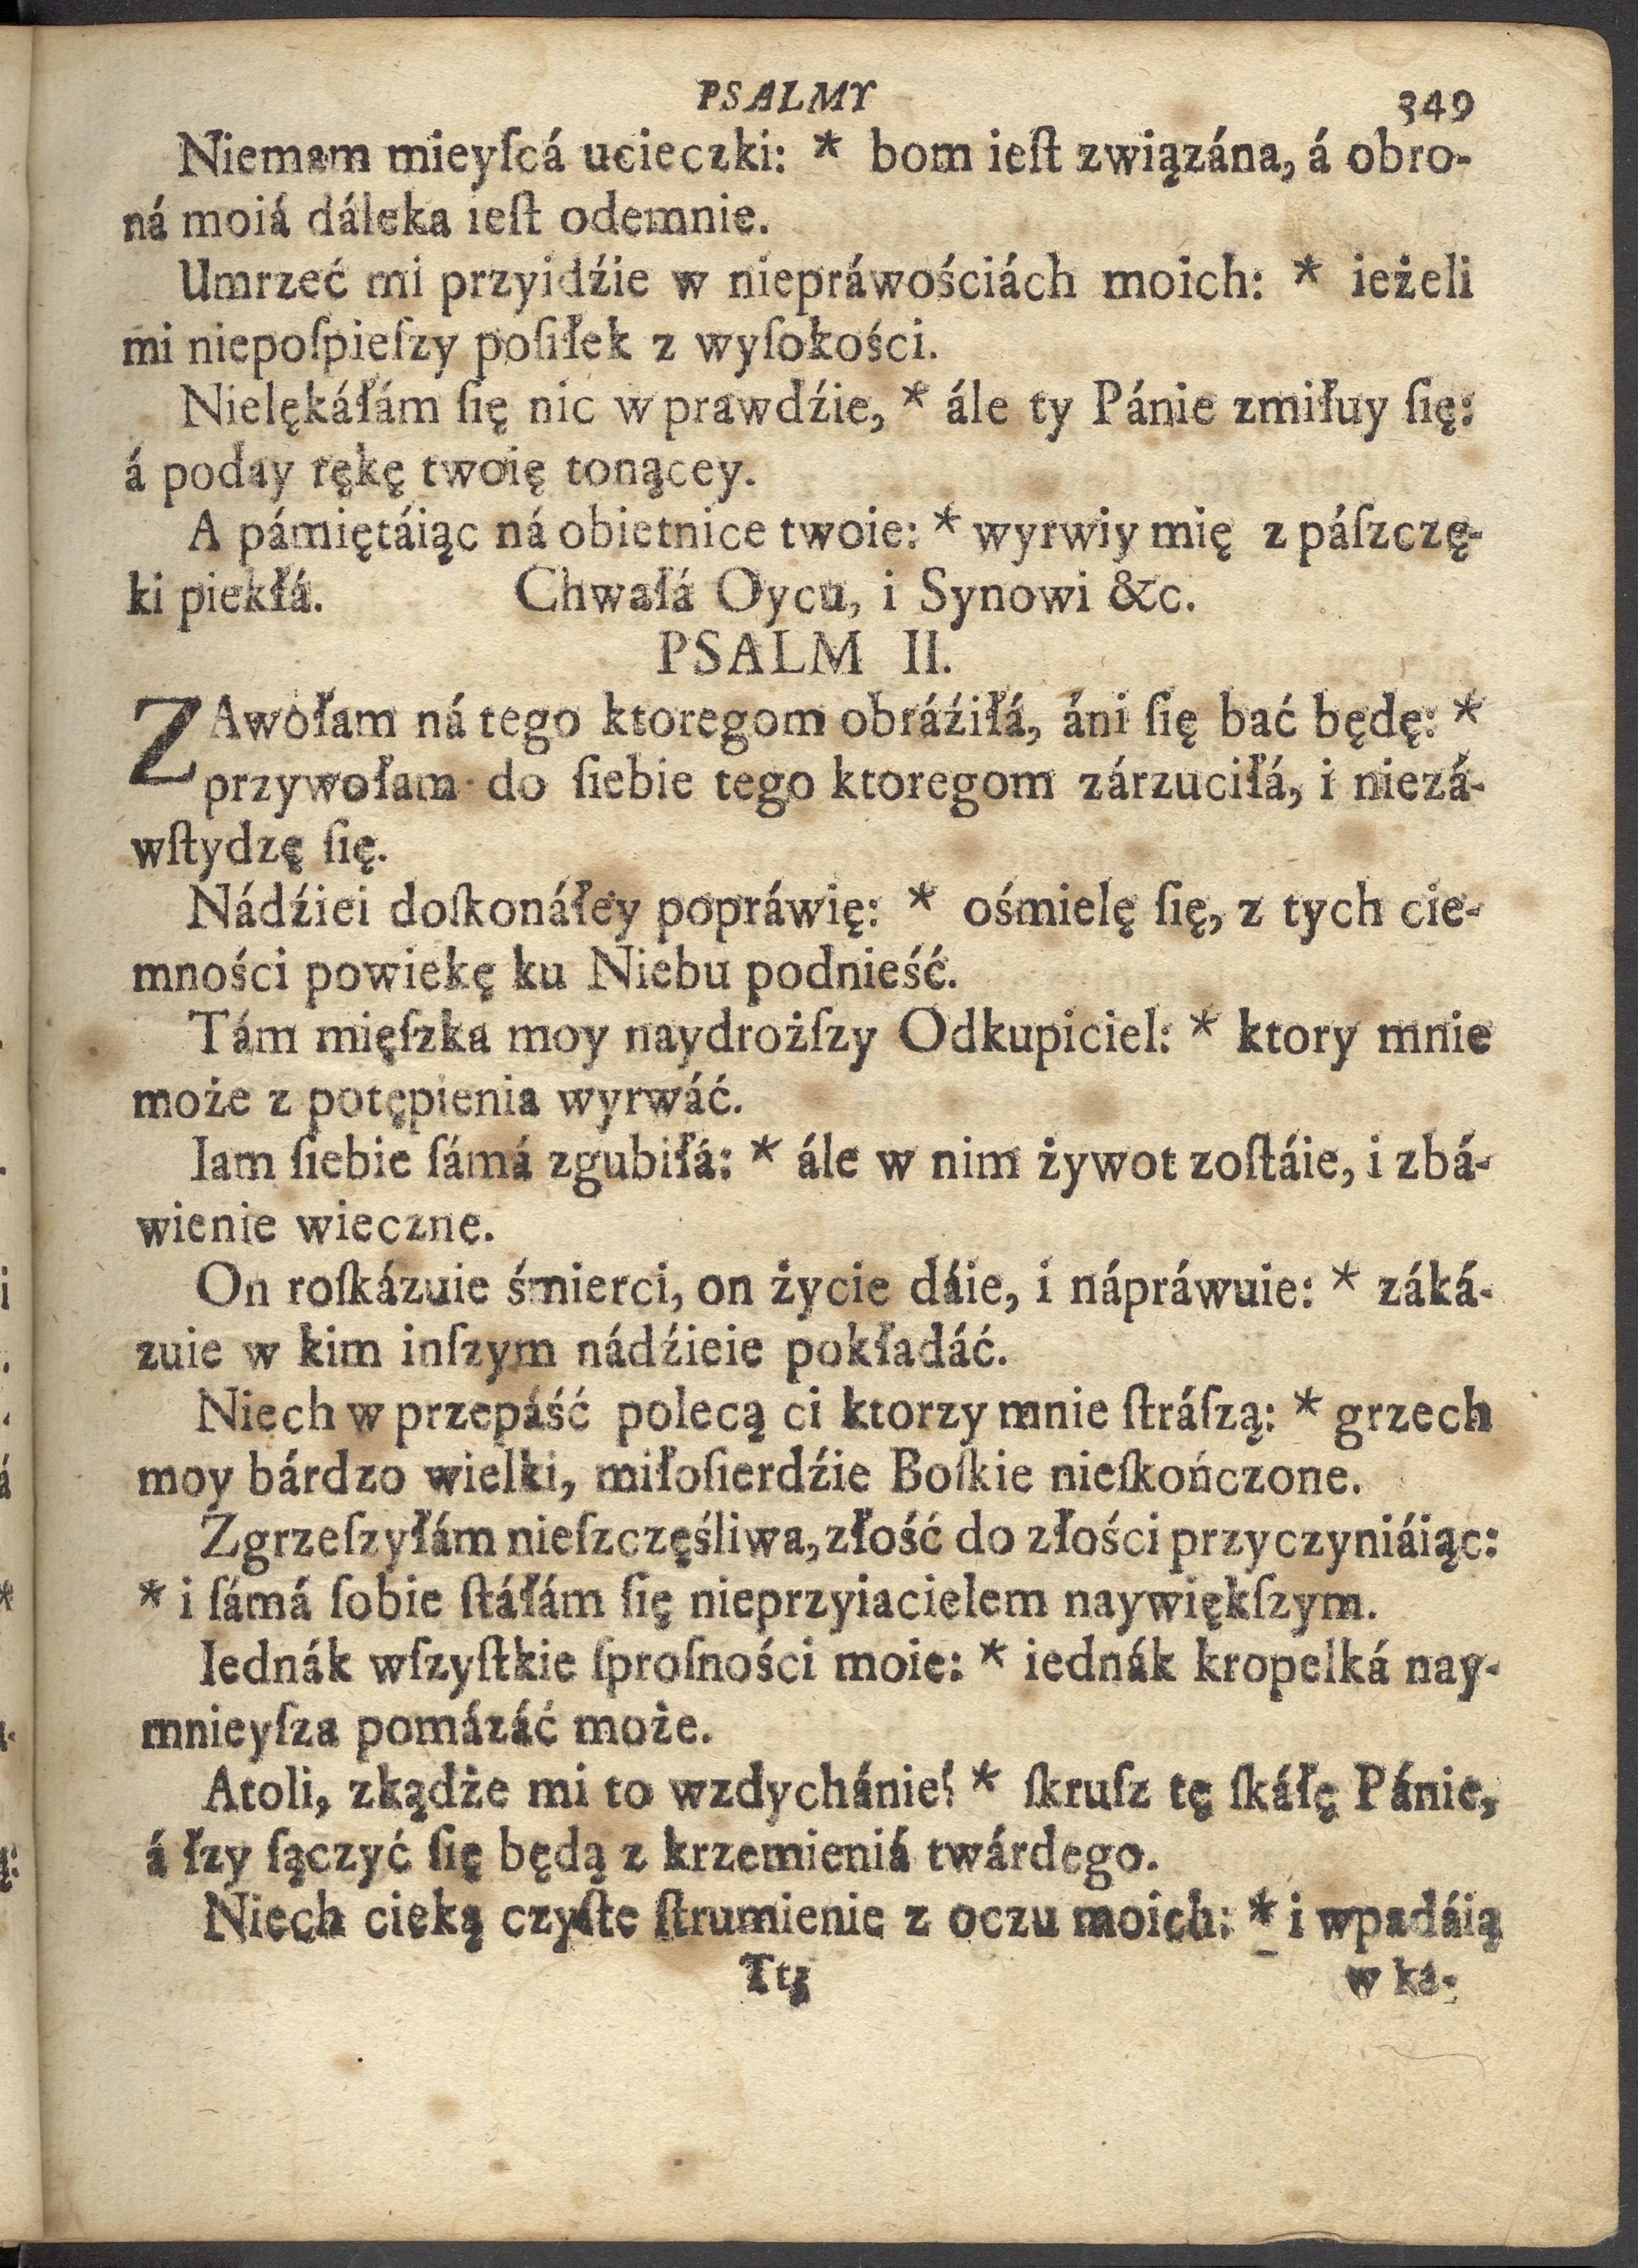 PSALMY 349
Niemam mieyſcá ucieczki: * bom ieſt związána, á obro-
ná moiá dáleka ieſt odemnie.
Umrzeć mi przyidźie w niepráwościách moich: * ieżeli
mi niepoſpieſzy poſiłek z wyſokości.
Nielękáłám ſię nic w prawdźie, * ále ty Pánie zmiłuy ſię:
á poday rękę twoię tonącey.
A pámiętáiąc ná obietnice twoie: * wyrwiy mię z páſzczę-
ki piekłá. Chwałá Oycu, i Synowi &c.
PSALM II.
ZAwołam ná tego ktoregom obráźiłá, áni ſię bać będę: *
przywołam do ſiebie tego ktoregom zárzuciłá, i niezá-
wſtydzę ſię.
Nádźiei doſkonáłey popráwię: * ośmielę ſię, z tych cie-
mności powiekę ku Niebu podnieść.
Tám mięſzka moy naydrożſzy Odkupiciel: * ktory mnie
może z potępienia wyrwáć.
Iam ſiebie ſámá zgubiłá: * ále w nim żywot zoſtáie, i zbá-
wienie wieczne.
On roſkázuie śmierci, on życie dáie, i nápráwuie: * záká-
zuie w kim inſzym nádźieie pokładáć.
Niech w przepáść polecą ci ktorzy mnie ſtráſzą: * grzech
moy bárdzo wielki, miłoſierdźie Boſkie nieſkończone.
Zgrzeſzyłám nieſzczęśliwa, złość do złości przyczyniáiąc:
* i ſámá ſobie ſtáłám ſię nieprzyiacielem naywiękſzym.
Iednák wſzyſtkie ſproſności moie: * iednák kropelká nay-
mnieyſza pomázáć może.
Atoli, zkądże mi to wzdychánie? * ſkruſz tę ſkáłę Pánie,
á łzy ſączyć ſię będą z krzemieniá twárdego.
Niech cieką czyſte ſtrumienie z oczu moich: * i wpadáią
w ká-